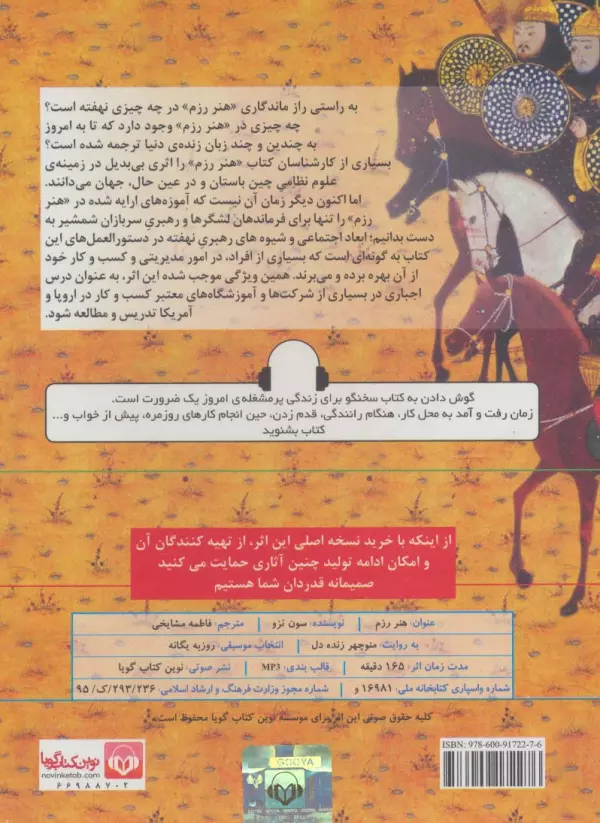 به راستی راز ماندگاری «هنر رزم» در چه چیزی نهفته است؟
چه چیزی در «هنر رزم» وجود دارد که تا به امروز
به چندین و چند زبان زنده‌ی دنیا ترجمه شده است؟
بسیاری از کارشناسان کتاب «هنر رزم» را اثری بی‌بدیل در زمینه‌ی
علوم نظامی چین باستان و در عین حال، جهان می‌دانند.
اما اکنون دیگر زمان آن نیست که آموزه‌های ارایه شده در «هنر
رزم» را تنها برای فرماندهان لشگرها و رهبریِ سربازان شمشیر به
دست بدانیم؛ ابعاد اجتماعی و شیوه های رهبریِ نهفته در دستورالعمل‌های این
کتاب به گونه‌ای است که بسیاری از افراد، در امور مدیریتی و کسب و کار خود
از آن بهره برده و می‌برند. همین ویژگی موجب شده این اثر، به عنوان درس
اجباری در بسیاری از شرکت‌ها و آموزشگاه‌های معتبر کسب و کار در اروپا و
آمریکا تدریس و مطالعه شود.
گوش دادن به کتاب سخنگو برای زندگی پرمشغله‌ی امروز یک ضرورت است.
زمان رفت و آمد به محل کار، هنگام رانندگی، قدم زدن، حین انجام کارهای روزمره، پیش از خواب و...
کتاب بشنوید
از اینکه با خرید نسخه اصلی این اثر، از تهیه کنندگان آن
و امکان ادامه تولید چنین آثاری حمایت می کنید
صمیمانه قدردان شما هستیم
عنوان: هنر رزم نویسنده: سون تزو مترجم: فاطمه مشایخی
به روایت: منوچهر زنده دل انتخاب موسیقی: روزبه یگانه
مدت زمان اثر: ۱۶۵ دقیقه قالب بندی: MP3 نشر صوتی: نوین کتاب گویا
شماره واسپاری کتابخانه ملی: ۱۶۹۸۱ و شماره مجوز وزارت فرهنگ و ارشاد اسلامی: ۲۹۳/۲۳۶/ک/ ۹۵
کلیه حقوق صوتی این اثر برای موسسه نوین کتاب گویا محفوظ است.
ISBN: 978-600-91722-7-6
GOOYA
نوین کتاب گویا
novinketab.com
۶۶۹۸۸۷۰۲